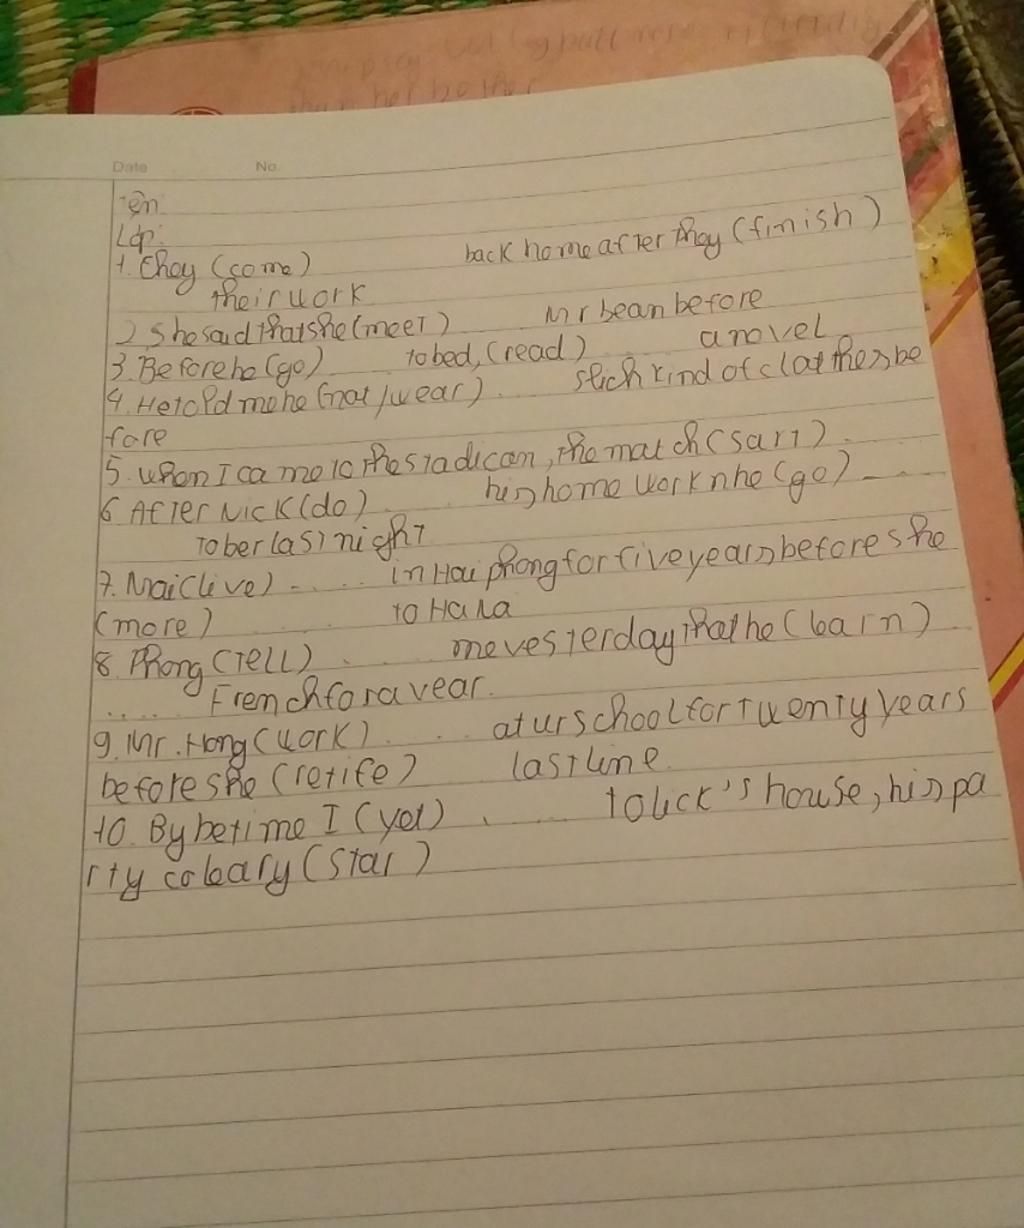 Date No.
Tên:
Lớp:
1. They (come) back home after they (finish)
their work
2. She said that she (meet) Mr bean before
3. Before he (go) to bed, (read) a novel
4. He told me he (not/wear) such kind of clothes be
fore
5. When I came to the stadican, the match (sart)
6 After Nick (do) his home work nhe (go)
to ber last night
7. Mai (live) ..... in Hai phong for five years before she
(more) to Ha Na
8. Phong (Tell) . me yesterday that he (barn)
.... French for a year.
9. Mr. Hong (work) ... at ur school for Twenty years
before she (retife) last lime
10. By betime I (yet) . .... to lick's house, his pa
rty coleary (star)